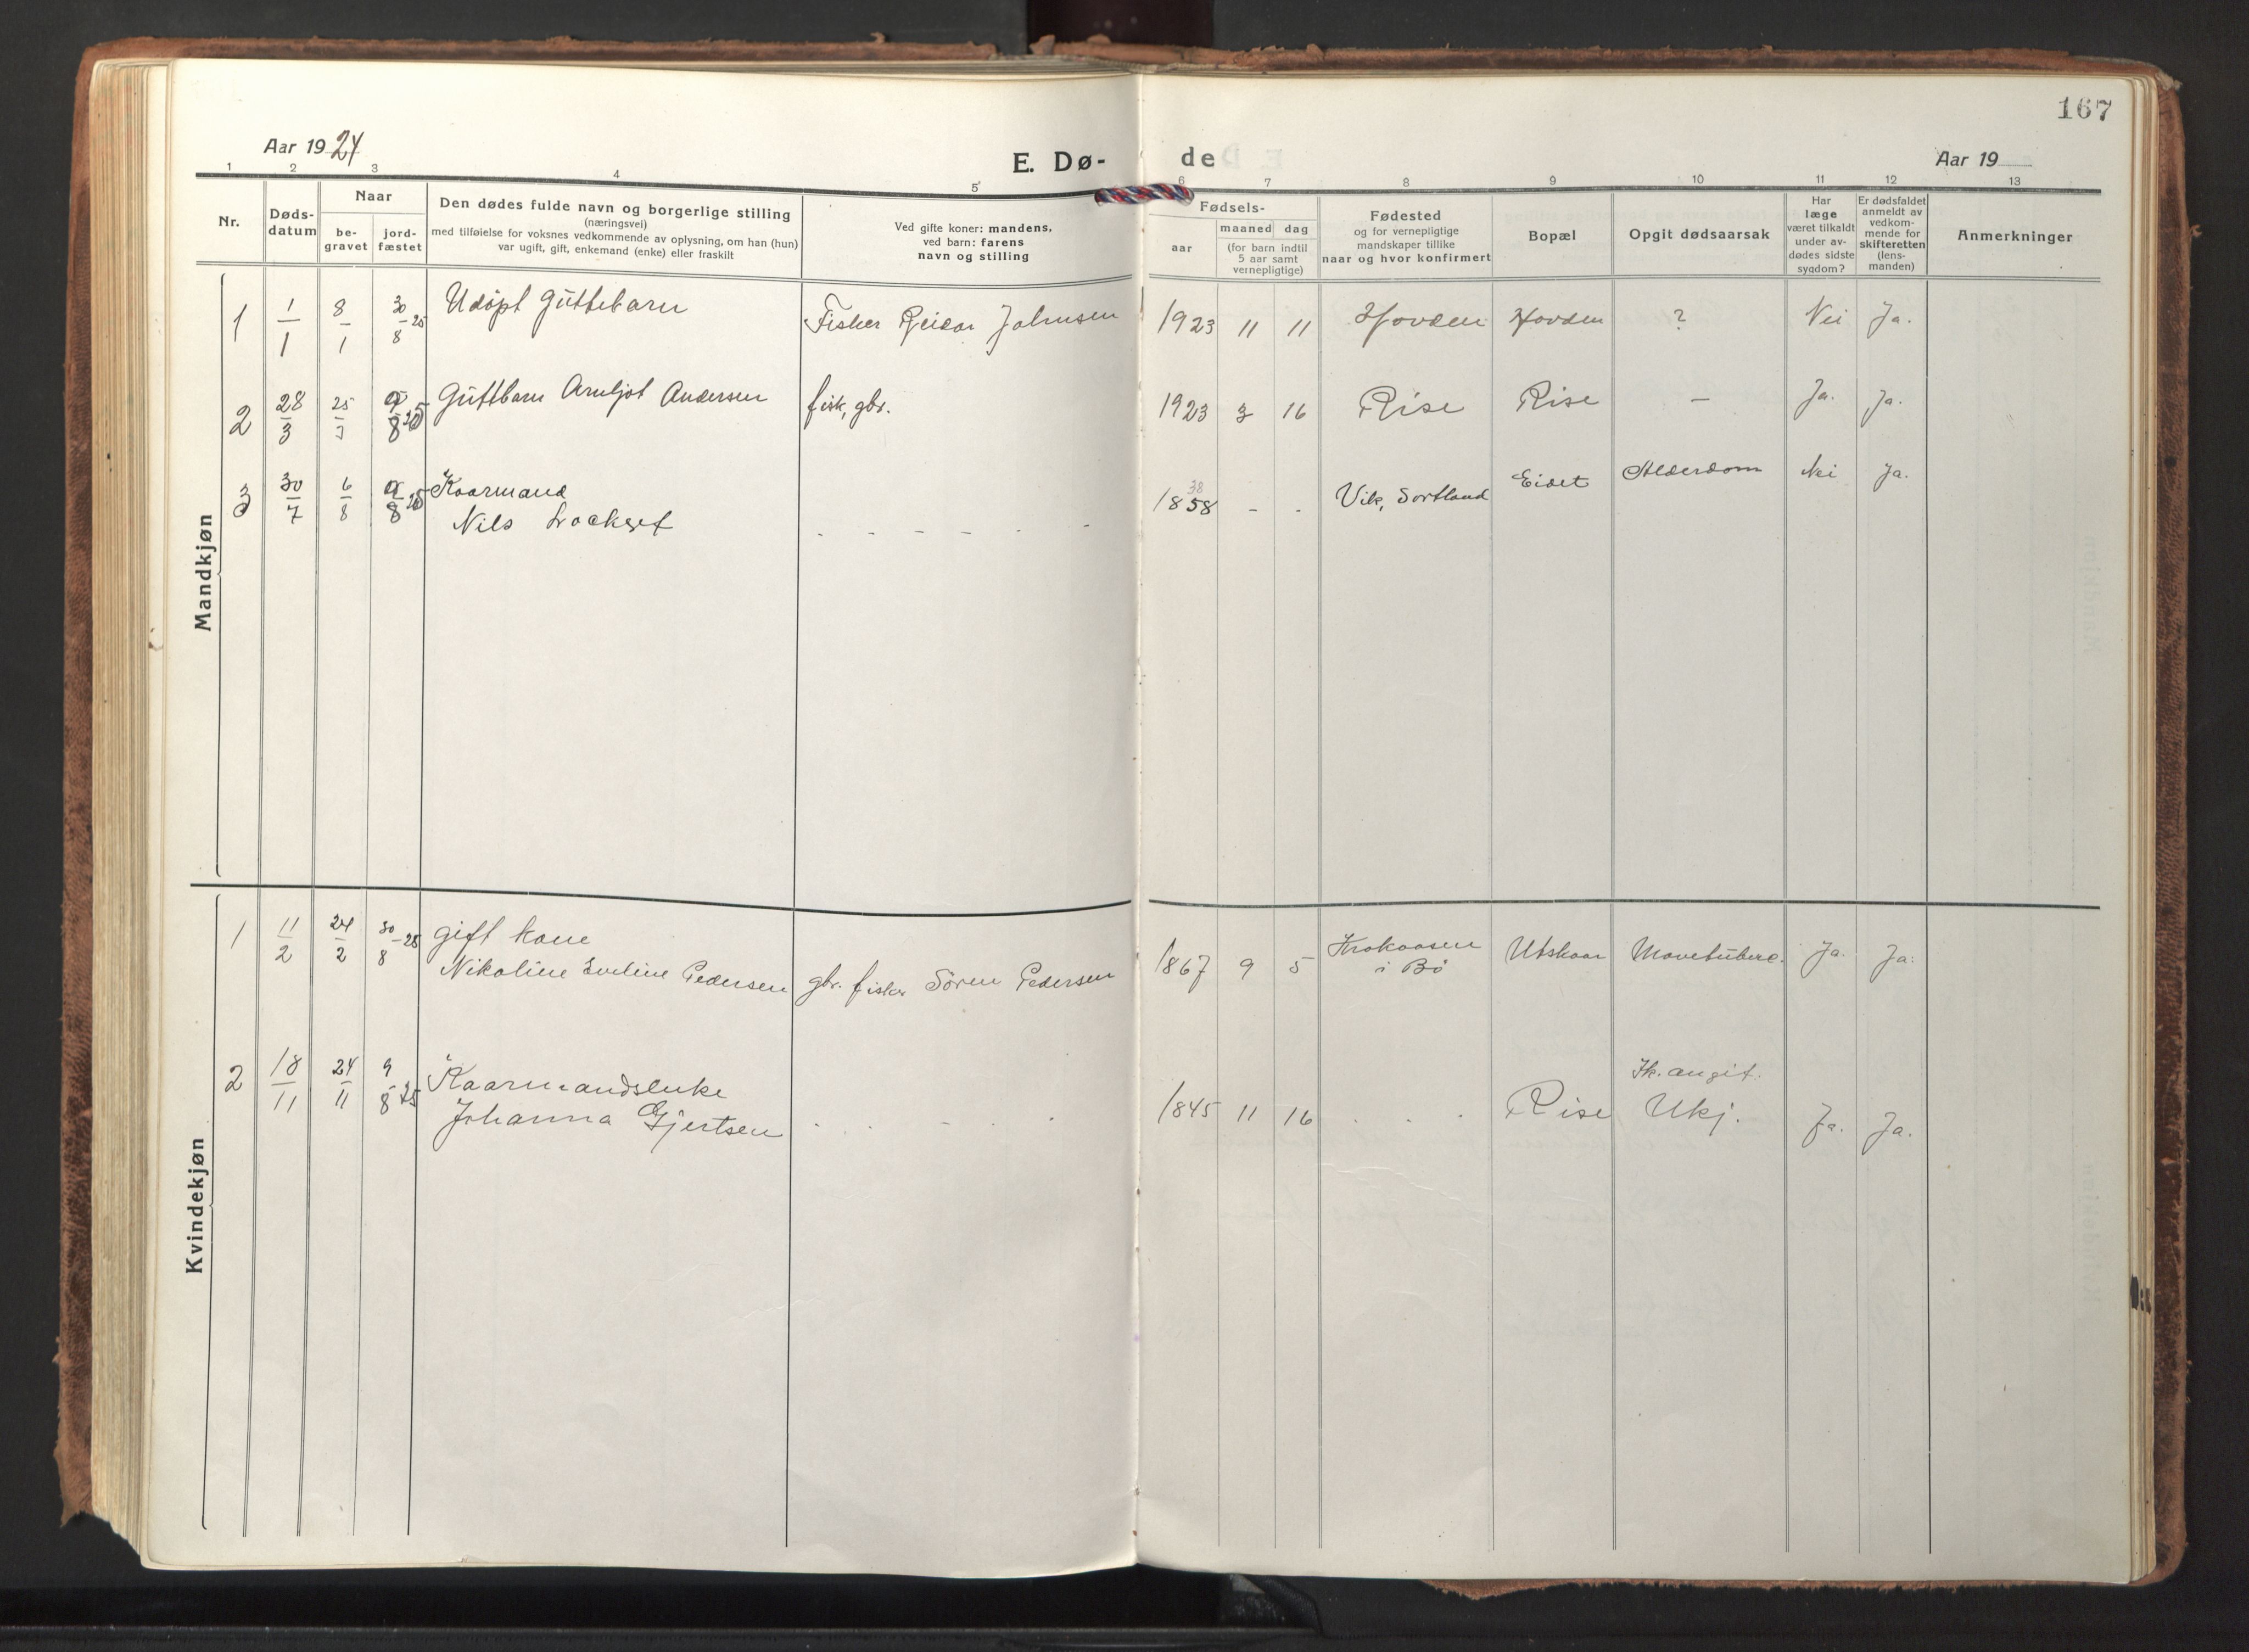 167
Aar 1924
E. Dø-
de
Aar 19
1 2 3 4 5 6 7 8 9 10 11 12 13
Nr.
Døds-
datum
Naar
be-
gravet
jord-
fæstet
Den dødes fulde navn og borgerlige stilling
(næringsvei)
med tilføielse for voksnes vedkommende av oplysning, om han (hun)
var ugift, gift, enkemand (enke) eller fraskilt
Ved gifte koner: mandens,
ved barn: farens
navn og stilling
Fødsels-
aar
maaned dag
(for barn indtil
5 aar samt
vernepligtige)
Fødested
og for vernepligtige
mandskaper tillike
naar og hvor konfirmert
Bopæl
Opgit dødsaarsak
Har
læge
været tilkaldt
under av-
dødes sidste
sygdom?
Er dødsfaldet
anmeldt av
vedkom-
mende for
skifteretten
(lens-
manden)
Anmerkninger
Mandkjøn
1 1/1 8/1 30/8-25 Udöpt Guttebarn Fisker Reidar Johnsen 1923 11 11 Hovden Hovden ? Nei Ja.
2 28/3 25/ 9/8 25 Guttbarn Arnljot Andersen fisk, gbr. 1923 3 16 Rise Rise - Ja. Ja.
3 30/7 6/8 9/8 25 Kaarmand
Nils - - - - - - 38
1858 - - Vik, Sortland Eidet Alderdom Nei Ja.
Kvindekjøn
1 11/2 24/2 30/8-25 gift kone
Nikoline Eveline Pedersen gbr. fisker Sören Pedersen 1867 9 5 Krokaasen
i Bö Utskaar Mavetuberc. Ja. Ja.
2 18/11 24/11 9/8 25 Kaarmandsenke
Johanna Gjertsen - - - - - - 1845 11 16 - - - Rise Ik. angit.
Ukj. Ja. Ja.